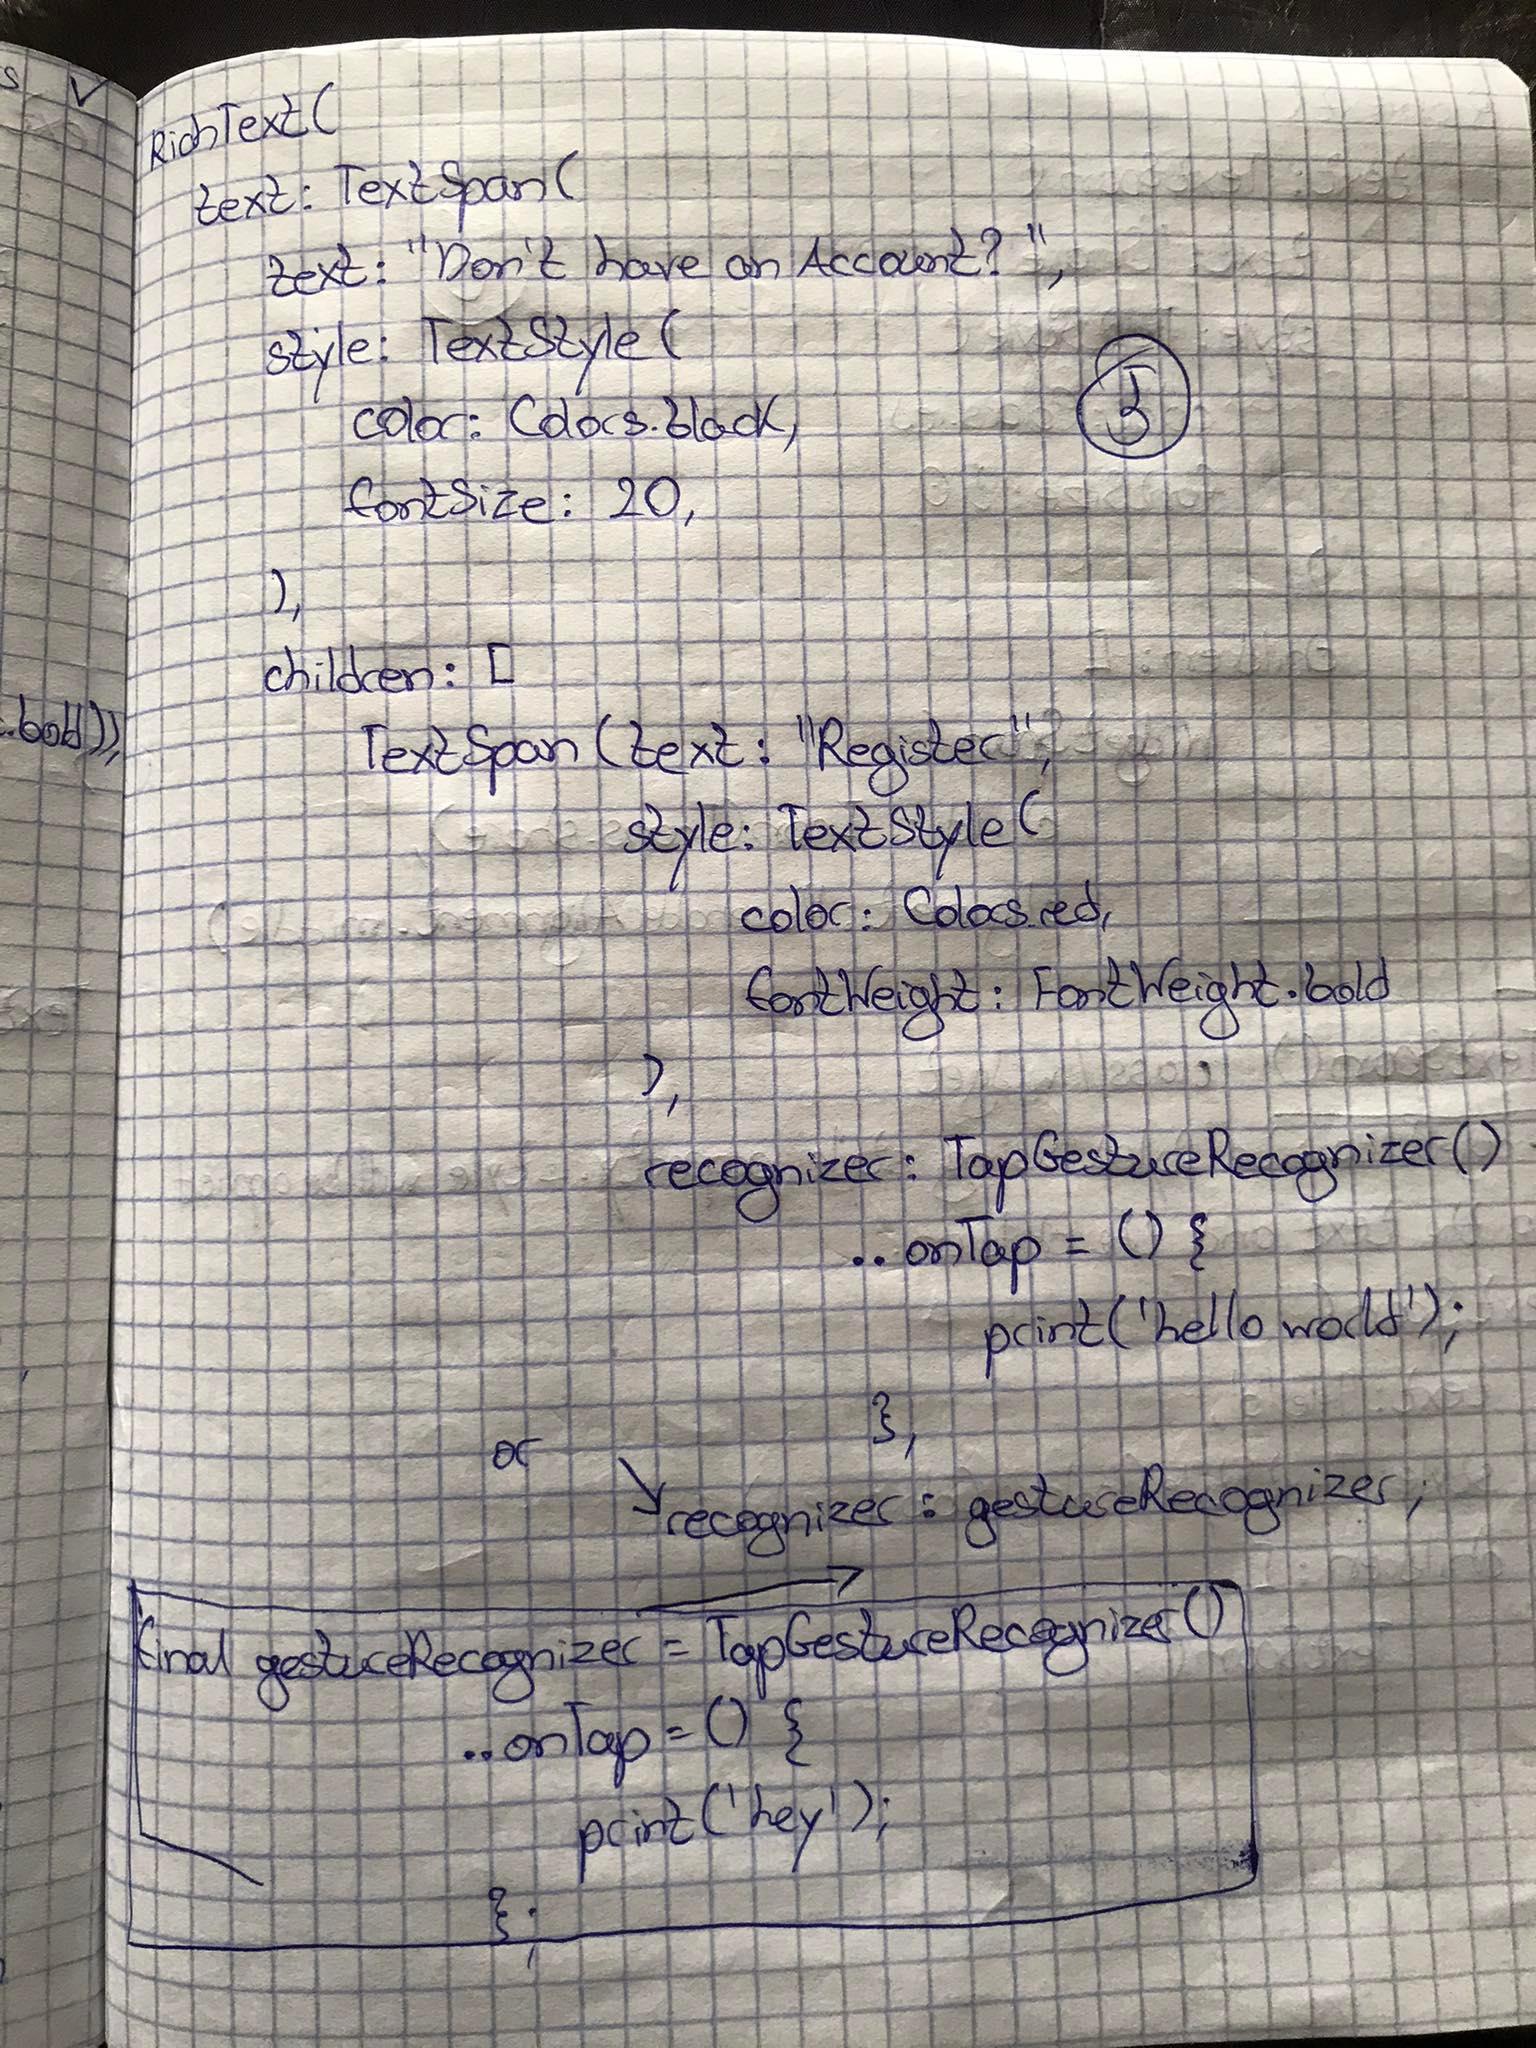 RichText(
text: TextSpan(
text: "Don't have an Account? ",
style: TextStyle(
color: Colors.black,
fontSize: 20,
),
children: [
TextSpan(text: "Register",
style: TextStyle(
color: Colors.red,
fontWeight: FontWeight.bold
),
recognizer: TapGestureRecognizer()
..onTap = () {
print('hello world');
},
or
recognizer: gestureRecognizer;
final gestureRecognizer = TapGestureRecognizer()
..onTap = () {
print('hey');
};
.bold)),